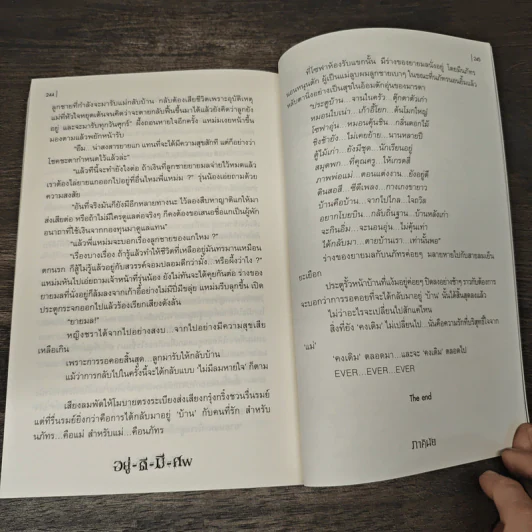 244 |
ลูกชายที่กำลังจะมารับแม่กลับบ้าน กลับต้องเสียชีวิตเพราะอุบัติเหตุ
แม่ที่หัวใจหยุดเต้นจนคิดว่าจะตายกลับได้ฟื้นขึ้นมาได้ แล้วยังคิดว่าลูกยัง
อยู่ และจะมารับทุกวันศุกร์" ผึ้งถอนหายใจอีกครั้ง แหม่มเงยหน้าขึ้น
มองตามแล้วพยักหน้ารับ
"อืม ..น่าสงสารยายแก แทนที่จะได้มีความสุขสักที แต่ก็อย่างว่า
โชคชะตากำหนดไว้แล้วล่ะ"
"แล้วทีนี้จะทำยังไงต่อ ถ้าเงินที่ลูกชายยายมลจ่ายไว้หมดแล้ว
เราต้องไล่ยายแกออกไปอยู่ที่อื่นไหมพี่แหม่ม ?" รุ่นน้องเอ่ยถามด้วย
ความสงสัย
"อันที่จริงมันก็ยังมีอีกหลายทางนะ ไว้ลองสืบหาญาติแกให้มา
ส่งเสียต่อ หรือถ้าไม่มีใครดูแลต่อจริงๆ ก็คงต้องขอเสนอชื่อแกเป็นผู้พัก
อนาถาที่ใช้เงินจากกองทุนมาดูแลแทน"
"แล้วพี่แหม่มจะบอกเรื่องลูกชายของแกไหม ?"
"เรื่องบางเรื่อง ถ้ารู้แล้วทำให้ชีวิตที่เหลืออยู่มันทรมานเหมือน
ตกนรก ก็สู้ไม่รู้แล้วอยู่กับสวรรค์จอมปลอมดีกว่ามั้ง...หรือผึ้งว่าไง ?"
แหม่มหันไปเอ่ยถามเจ้าหน้าที่รุ่นน้อง ยังไม่ทันจะได้คุยกันต่อ ร่างของ
ยายมลที่นั่งอยู่ก็ล้มลงจากเก้าอี้อย่างไม่มีปี่มีขลุ่ย แหม่มรีบลุกขึ้น เปิด
ประตูกระจกออกไปแล้วร้องเรียกเสียงดังลั่น
"ยายมล!"
หญิงชราได้จากไปอย่างสงบ...จากไปอย่างมีความสุขเสีย
เหลือเกิน
เพราะการรอคอยสิ้นสุด...ลูกมารับให้กลับบ้าน
แม้ว่าการกลับไปในครั้งนี้จะได้กลับแบบ 'ไม่มีลมหายใจ' ก็ตาม
เสียงลมพัดให้โมบายตรงระเบียงส่งเสียงกรุ๊งกริ๊งชวนรื่นรมย์
แต่ที่รื่นรมย์ยิ่งกว่าคือการได้กลับมาอยู่ 'บ้าน' กับคนที่รัก สำหรับ
นภัทร...คือแม่ สำหรับแม่...คือนภัทร
อยู่-ดี-มี-ศพ
| 245
ที่โซฟาห้องรับแขกนั้น มีร่างของยายมลนั่งอยู่ โดยมีนภัทร
นอนหนุนตัก ผู้เป็นแม่ลูบผมลูกชายเบาๆ
หลับตานิ่งอย่างเป็นสุขในอ้อมตักอุ่นของมารดา
"ประตูบ้าน ..จานในครัว ..ตุ๊กตาตัวเก่า
หมอนใบเน่า ..เก้าอี้โยก ..ต้นโมกใหญ่
โซฟาอุ่น.. หมอนคุ้นชิน ..กลิ่นดอกไม้
ชิงช้ายัง ..ไม่เคยย้าย ..นานหลายปี
ตู้ไม้เก่า ..ยังมีชุด.. นักเรียนอยู่
สมุดพก.. ที่คุณครู.. ให้เกรดสี่
ภาพพ่อแม่.. ตอนแต่งงาน.. ยังอยู่ดี
ดินสอสี.. ซีดีเพลง.. กางเกงขายาว
บ้านคือบ้าน ..จากไปไกล.. ใจถวิล
อยากโบยบิน ..กลับถิ่นฐาน ..บ้านหลังเก่า
จะกินอิ่ม ...จะนอนอุ่น.. ไม่คุ้นเท่า
ได้กลับมา ..ตายบ้านเรา ..เท่านั้นพอ"
ร่างของยายมลกับนภัทรค่อยๆ มลายหายไปกับสายลมเย็น
ยะเยือก
ประตูรั้วหน้าบ้านที่แง้มอยู่ค่อยๆ ปิดลงอย่างช้าๆ ราวกับต้องการ
จะบอกว่าการรอคอยที่จะได้กลับมาอยู่ 'บ้าน' นั้นได้สิ้นสุดลงแล้ว
ไม่ว่าอะไรจะเปลี่ยนไปสักแค่ไหน
สิ่งที่ยัง 'คงเดิม' ไม่เปลี่ยนไป...นั่นคือความรักที่บริสุทธิ์ใจจาก
'แม่'
'คงเดิม' ตลอดมา...และจะ 'คงเดิม' ตลอดไป
EVER...EVER...EVER
The end
ภาคินัย